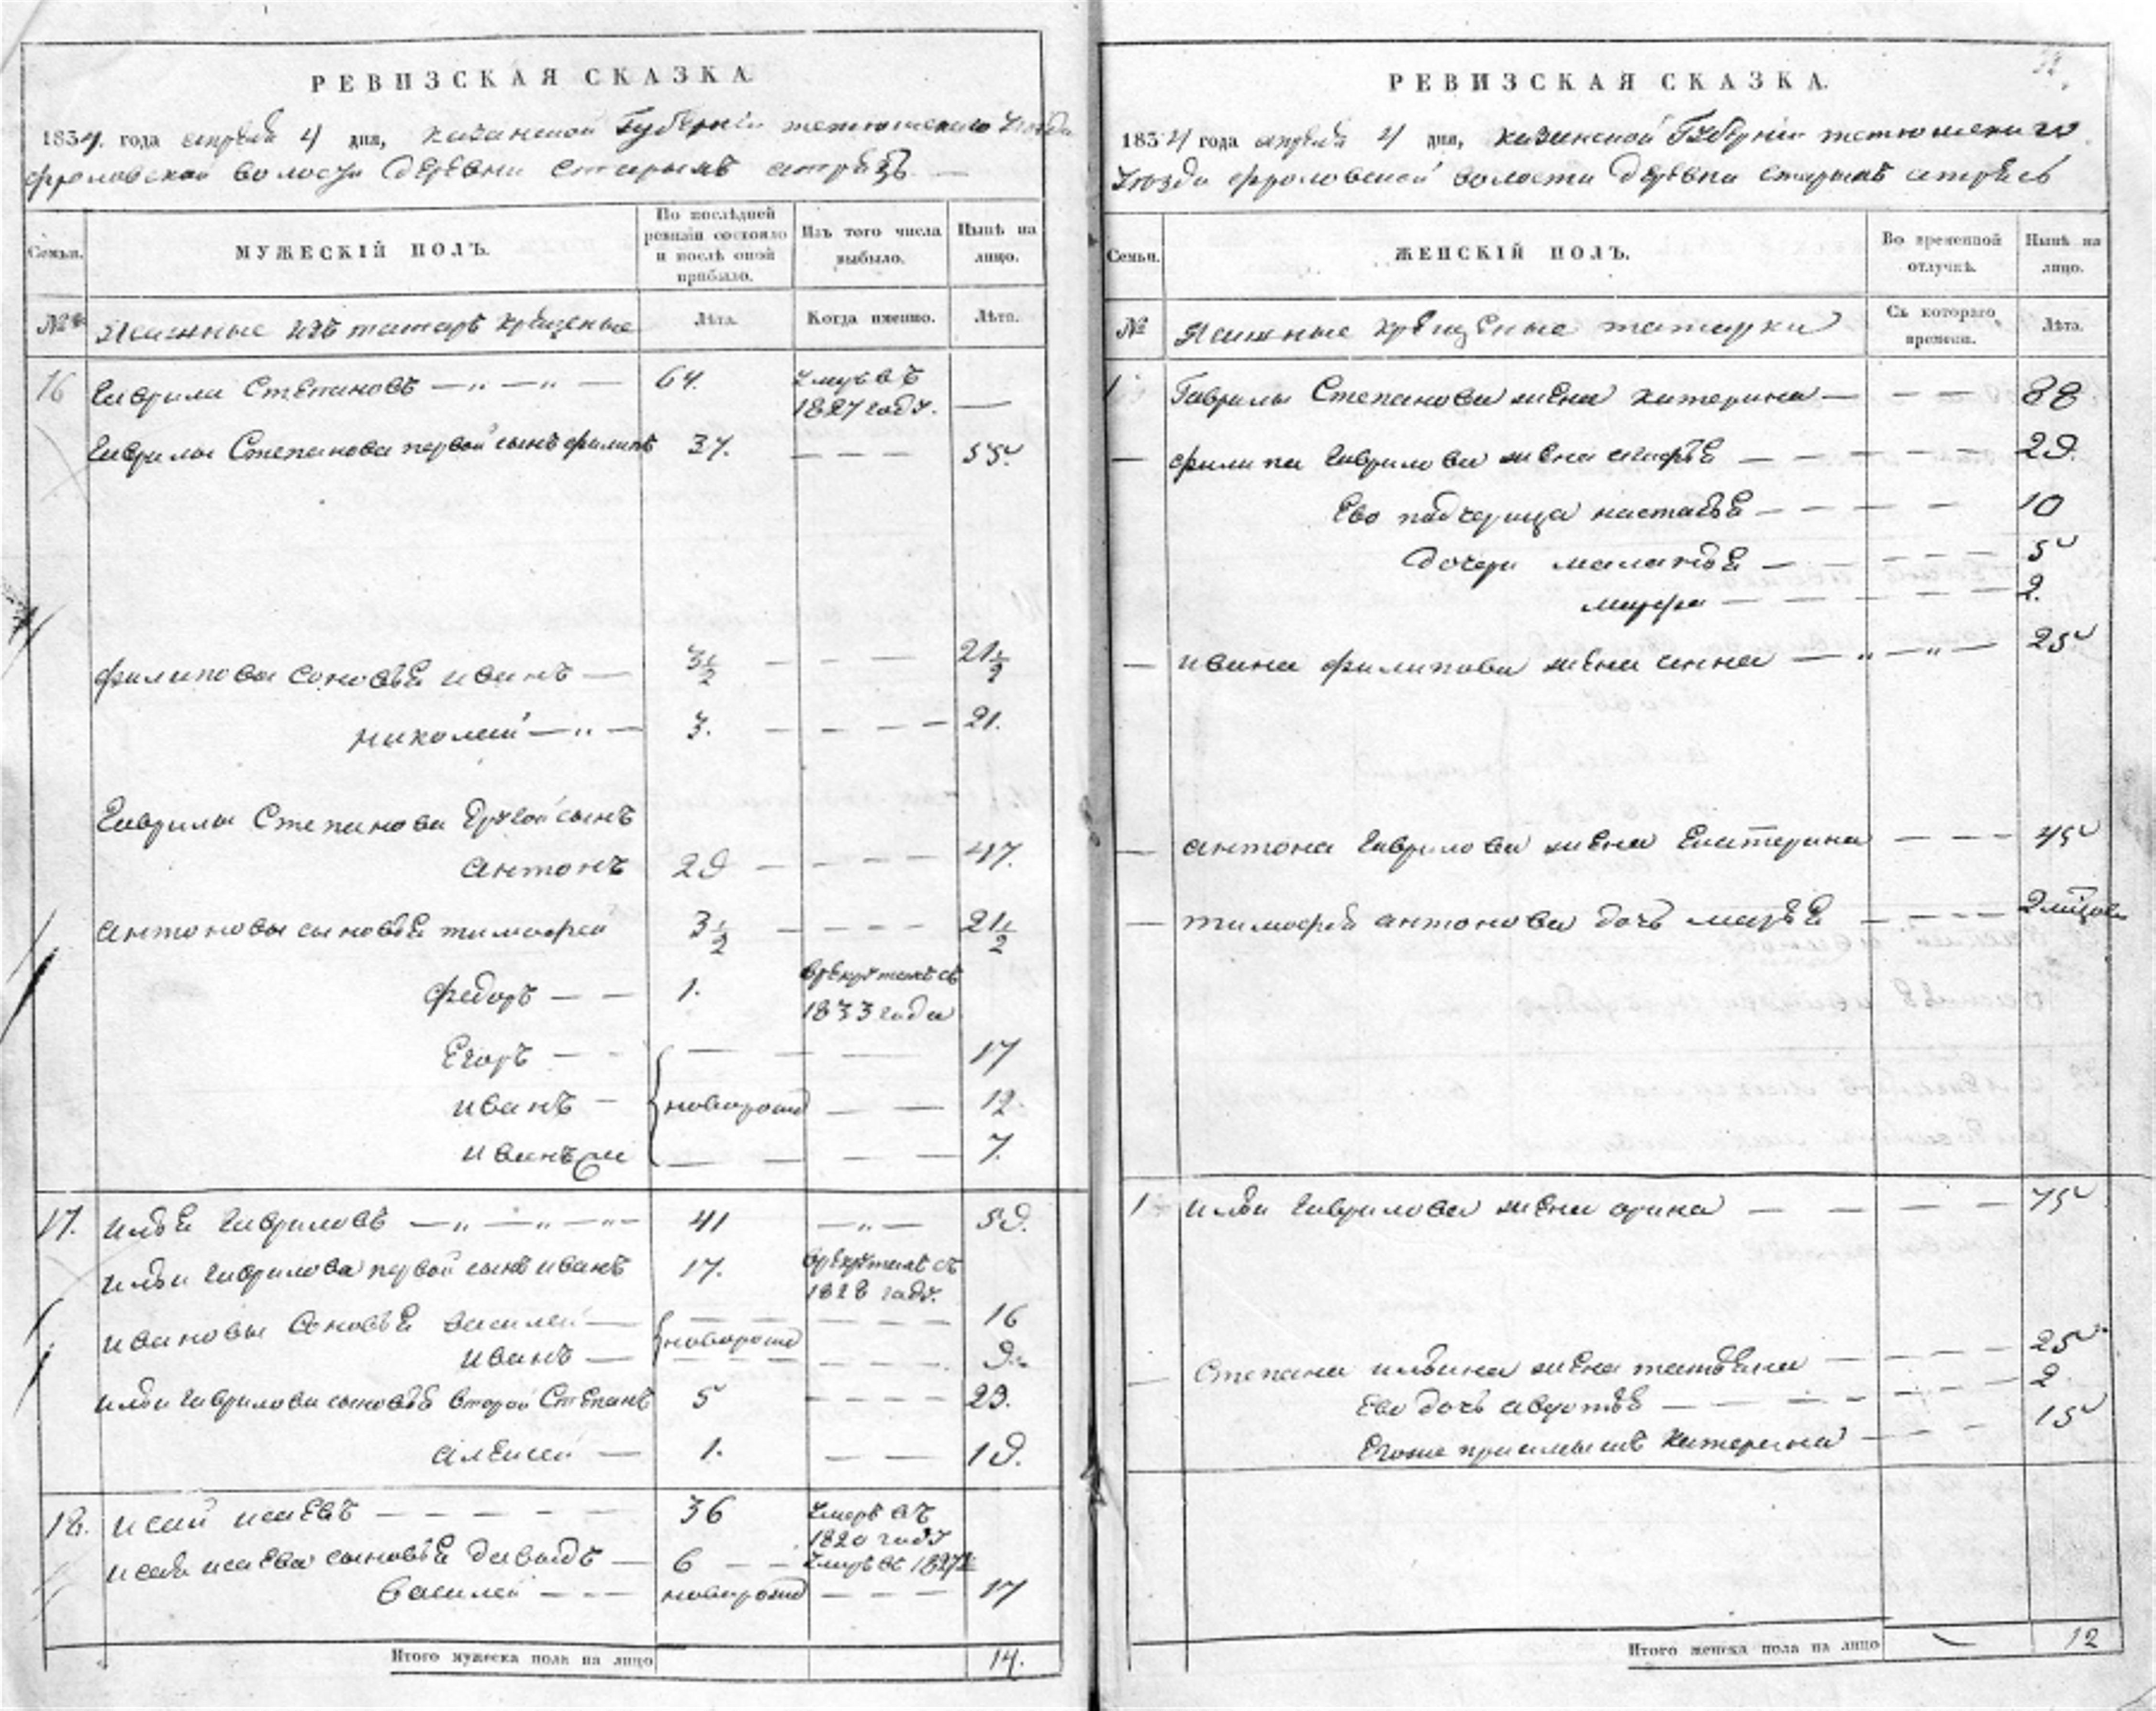 РЕВИЗСКАЯ СКАЗКА
1834. года апреля 4 дня, казанской Губернiи тетюшского Уезда
фроловской волости Деревни Старымъ
Семьи.
МУЖЕСКIЙ ПОЛЪ.
По послѣдней ревизiи состояло и послѣ оной прибыло.
Изъ того числа выбыло.
Нынѣ на лицо.
№
Ясашные изъ татаръ крещеные
Лѣта.
Когда именно.
Лѣта.
16 Гаврила Степановъ — „ — „ — 64. умръ въ
1827 году. —
Гаврилы Степанова первой сынъ филипъ 37. — — — 55.
филиповы сыновьѣ иванъ — 3½ — — — 21½
николай — „ — 3. — — — — 21.
Гаврилы Степанова другой сынъ
антонъ 29 — — — — 47.
антоновы сыновьѣ тимофей 3½ — — — — 21½
федоръ — — 1. врекрутахъ съ
1833 года
Егоръ — — — — — 17
иванъ — новорожд — — 12.
иванъ же — — — — 7.
17. илья гавриловъ — „ — „ — „ — 41 — „ — 59.
ильи гаврилова первой сынъ иванъ 17. врекрутахъ съ
1828 году.
ивановы сыновьѣ василей — новорожд — — — 16
иванъ — — — — 9.
ильи гаврилова сыновьѣ второй Степанъ 5 — — — — 23.
алексей — 1. — — 19.
18. исай исаевъ — — — — — 36 умеръ въ
1820 году
исая исаева сыновьѣ давыдъ — 6 — — умръ въ 1827
василей — — — новорожд — — — 17
Итого мужеска пола на лицо 14.
РЕВИЗСКАЯ СКАЗКА.
1834 года апреля 4 дня, казанской Губернiи тетюшского
Уезда фроловской волости Деревни старымъ
Семьи.
ЖЕНСКIЙ ПОЛЪ.
Во временной отлучкѣ.
Нынѣ на лицо.
№
Ясашные крещеные татарки
Съ котораго времени.
Лѣта.
1 Гаврилы Степанова жена катерина — — — 88
— филипа гаврилова жена — — — — — — 29.
Ево падчерица настасья — — — — 10
дочери маланья — — — — 5
марфа — — — — — 2.
— ивана филипова жена анна — „ — „ — 25
— антона гаврилова жена Екатерина — — — 45
— тимофея антонова дочь марья — — — — 2
1 ильи гаврилова жена орина — — — — 75
— Степана ильина жена татьяна — — — — 25
Ево дочь авдотья — — — — — 2
Егоже приемышъ катерина — — — 15
Итого женска пола на лицо — 12